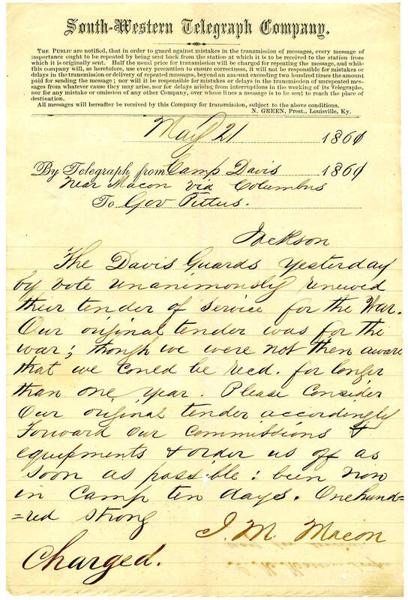 South-Western Telegraph Company.
THE PUBLIC are notified, that in order to guard against mistakes in the transmission of messages, every message of
importance ought to be repeated by being sent back from the station at which it is to be received to the station from
which it is originally sent. Half the usual price for transmission will be charged for repeating the message, and while
this company will, as heretofore, use every precaution to ensure correctness, it will not be responsible for mistakes or
delays in the transmission or delivery of repeated messages, beyond an amount exceeding two hundred times the amount
paid for sending the message; nor will it be responsible for mistakes or delays in the transmission of unrepeated mes-
sages from whatever cause they may arise, nor for delays arising from interruptions in the working of its Telegraphs,
nor for any mistake or omission of any other Company, over whose lines a message is to be sent to reach the place of
destination.
All messages will hereafter be received by this Company for transmission, subject to the above conditions.
N. GREEN, Prest., Louisville, Ky.
May 21 1861
By Telegraph from Camp Davis 1861
Near Macon via Columbus
To Gov Pettus.
Jackson
The Davis Guards yesterday
by vote unanimously renewed
their tender of service for the War.
Our original tender was for the
war; though we were not then aware
that we could be recd. for longer
than one year. Please Consider
Our original tender accordingly
Forward our commissions &
equipments & order us off as
soon as possible: been now
in Camp ten days. One hund-
=red strong
J. M. Macon
Charged.